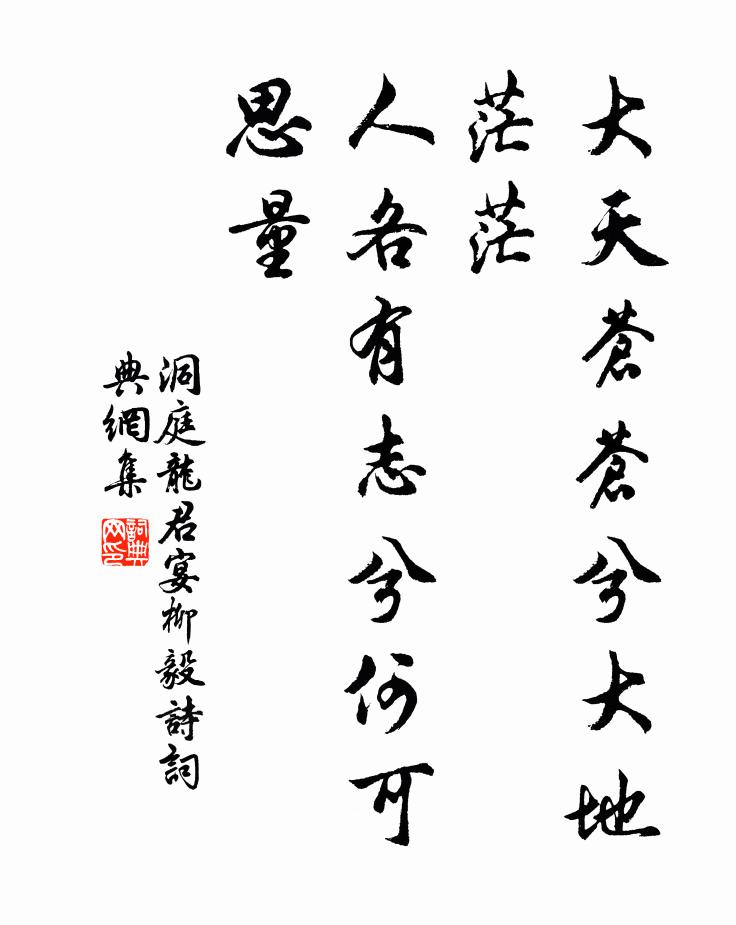 大天蒼蒼兮大地
茫茫
人各有志兮何可
思量
洞庭龍君宴柳毅詩詞
典網集
詞典
网印